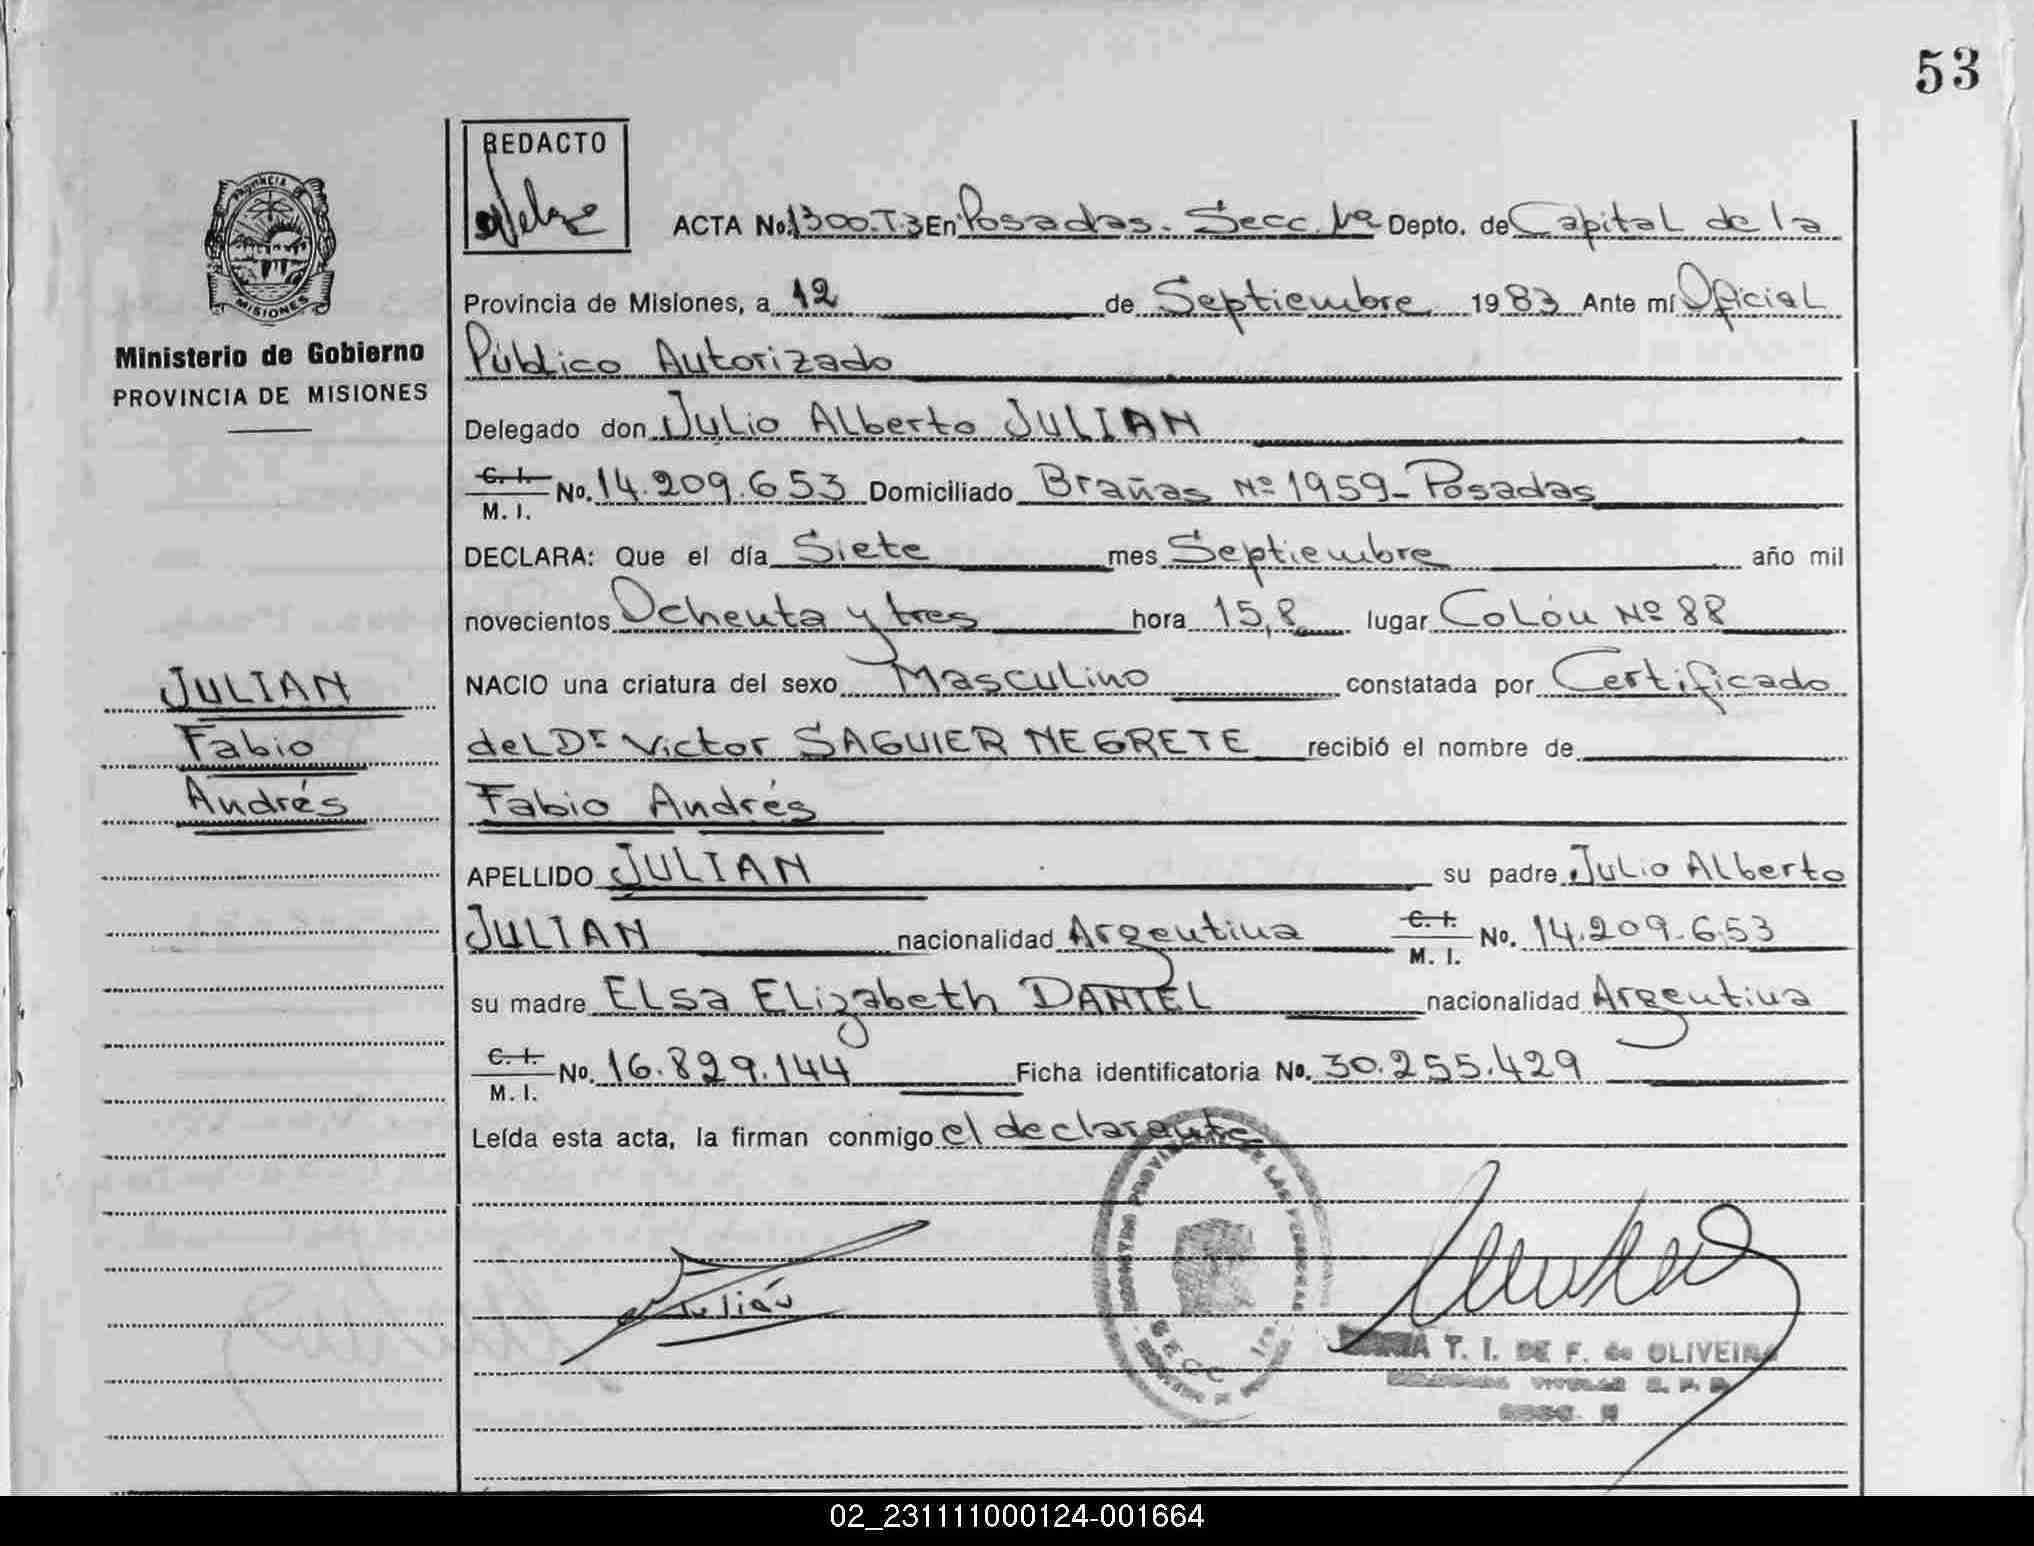 53
REDACTO
ACTA No. 1300.T.3 En Posadas. Secc. 1ª Depto. de Capital de la
Provincia de Misiones, a 12 de Septiembre 1983 Ante mí Oficial
Público Autorizado
Delegado don Julio Alberto JULIAN
C. I. M. I. No. 14.209.653 Domiciliado Brañas Nº 1959- Posadas
DECLARA: Que el día Siete mes Septiembre año mil
novecientos Ochenta y tres hora 15,8 lugar Colón Nº 88
NACIO una criatura del sexo Masculino constatada por Certificado
del Dr Victor SAGUIER NEGRETE recibió el nombre de
Fabio Andrés
APELLIDO JULIAN su padre Julio Alberto
JULIAN nacionalidad Argentina C. I. M. I. No. 14.209.653
su madre Elsa Elizabeth DANIEL nacionalidad Argentina
C. I. M. I. No. 16.829.144 Ficha identificatoria No. 30.255.429
Leída esta acta, la firman conmigo el declarante
Julián
T. I. DE F. de OLIVEIRA
PROVINCIA DE
MISIONES
Ministerio de Gobierno
PROVINCIA DE MISIONES
JULIAN
Fabio
Andrés
SECC 1ra.
02_231111000124-001664